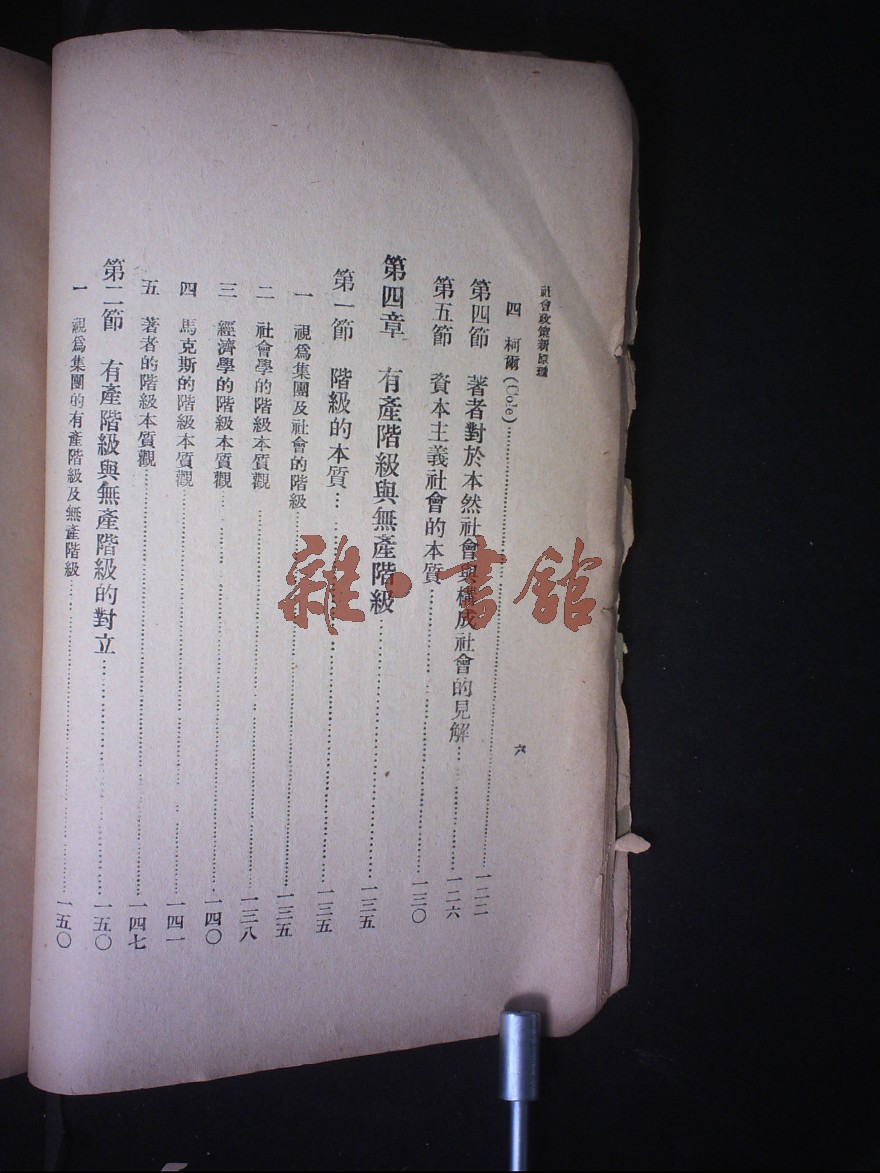 社會政策新原理
六
四 柯爾(Cole)……一二二
第四節 著者對於本然社會與構成社會的見解……一二六
第五節 資本主義社會的本質……一三〇
第四章 有產階級與無產階級……一三五
第一節 階級的本質……一三五
一 視爲集團及社會的階級……一三五
二 社會學的階級本質觀……一三八
三 經濟學的階級本質觀……一四〇
四 馬克斯的階級本質觀……一四一
五 著者的階級本質觀……一四七
第二節 有產階級與無產階級的對立……一五〇
一 視爲集團的有產階級及無產階級……一五〇
雜·書館